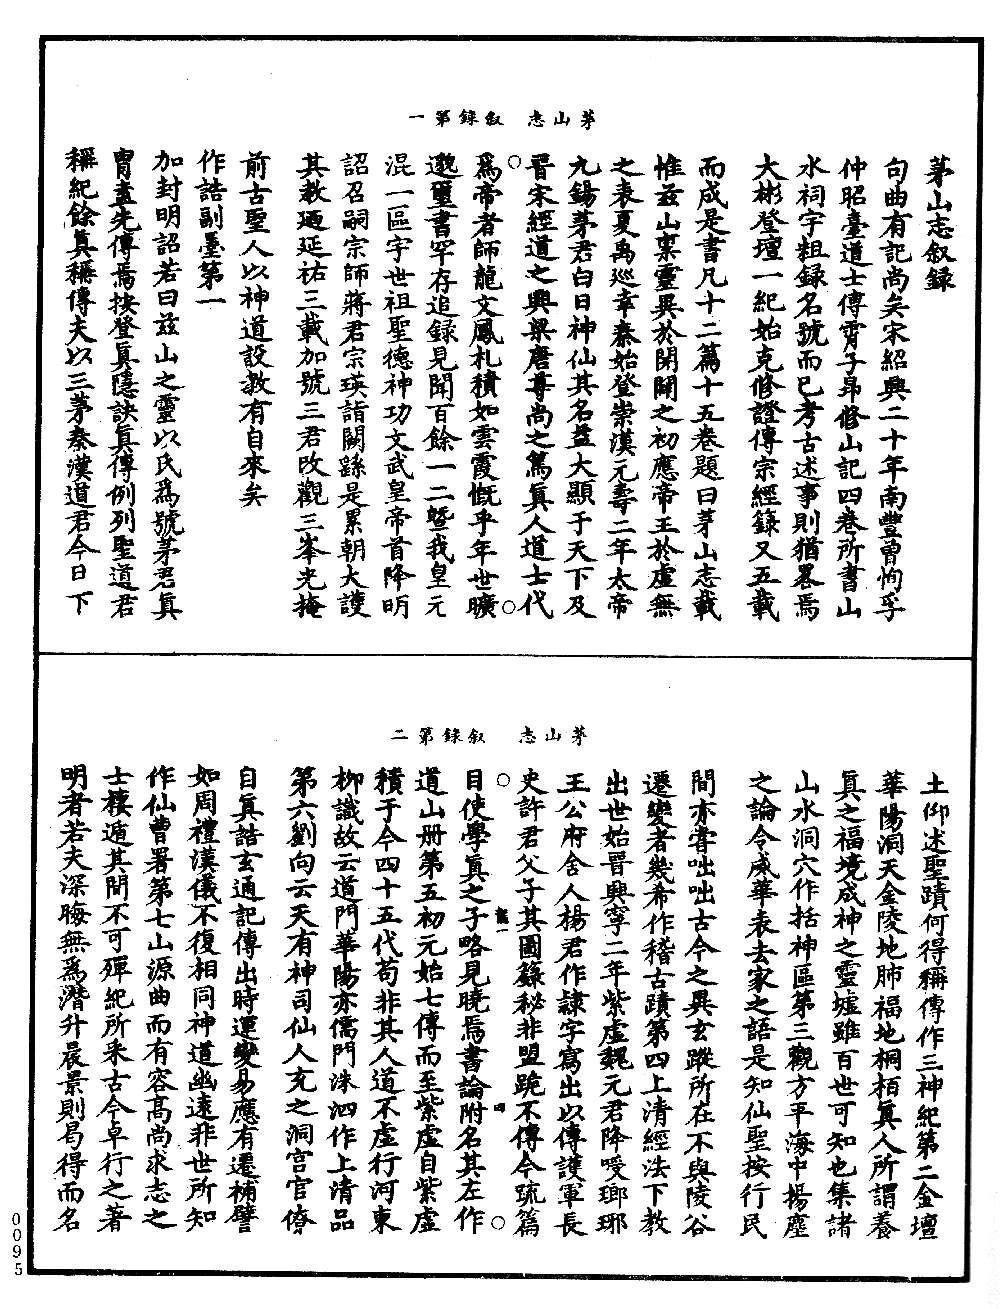 茅山志 叙錄第一
茅山志叙錄
句曲有記尚矣宋紹興二十年南豐曾恂孚
仲昭臺道士傅霄子昂修山記四卷所書山
水祠宇粗錄名號而已考古述事則猶畧焉
大彬登壇一紀始克修證傳宗經籙又五載
而成是書凡十二篇十五卷題曰茅山志載
惟茲山稟靈異於開闢之初應帝王於虛無
之表夏禹巡幸秦始登崇漢元壽二年太帝
九錫茅君白日神仙其名益大顯于天下及
晉宋經道之興梁唐尊尚之篤真人道士代
爲帝者師龍文鳳札積如雲霞慨乎年世曠
邈璽書罕存追錄見聞百餘一二暨我皇元
混一區宇世祖聖德神功文武皇帝首降明
詔召嗣宗師蔣君宗瑛詣闕繇是累朝大護
其教迺延祐三載加號三君改觀三峯光掩
前古聖人以神道設教有自來矣
作誥副墨第一
加封明詔若曰茲山之靈以氏爲號茅君真
胄盍先傳焉按登真隱訣真傳例列聖道君
稱紀餘真稱傳夫以三茅秦漢道君今日下
茅山志 叙錄第二
土仰述聖蹟何得稱傳作三神紀第二金壇
華陽洞天金陵地肺福地桐栢真人所謂養
真之福境成神之靈墟雖百世可知也集諸
山水洞穴作括神區第三觀方平海中揚塵
之論令威華表去家之語是知仙聖按行民
間亦嘗咄咄古今之異玄蹤所在不與陵谷
遷變者幾希作稽古蹟第四上清經法下教
出世始晉興寧二年紫虛魏元君降授瑯琊
王公府舍人楊君作隷字寫出以傳護軍長
史許君父子其圖籙秘非盟跪不傳今疏篇
目使學真之子略見曉焉書論附名其左作
道山册第五初元始七傳而至紫虛自紫虛
積于今四十五代苟非其人道不虛行河東
柳識故云道門華陽亦儒門洙泗作上清品
第六劉向云天有神司仙人充之洞宫官僚
自真誥玄通記傳出時運變易應有遷補譬
如周禮漢儀不復相同神道幽遠非世所知
作仙曹署第七山源曲而有容高尚求志之
士棲遁其間不可殫紀所采古今卓行之著
明者若夫深晦無爲潛升晨景則曷得而名
0095